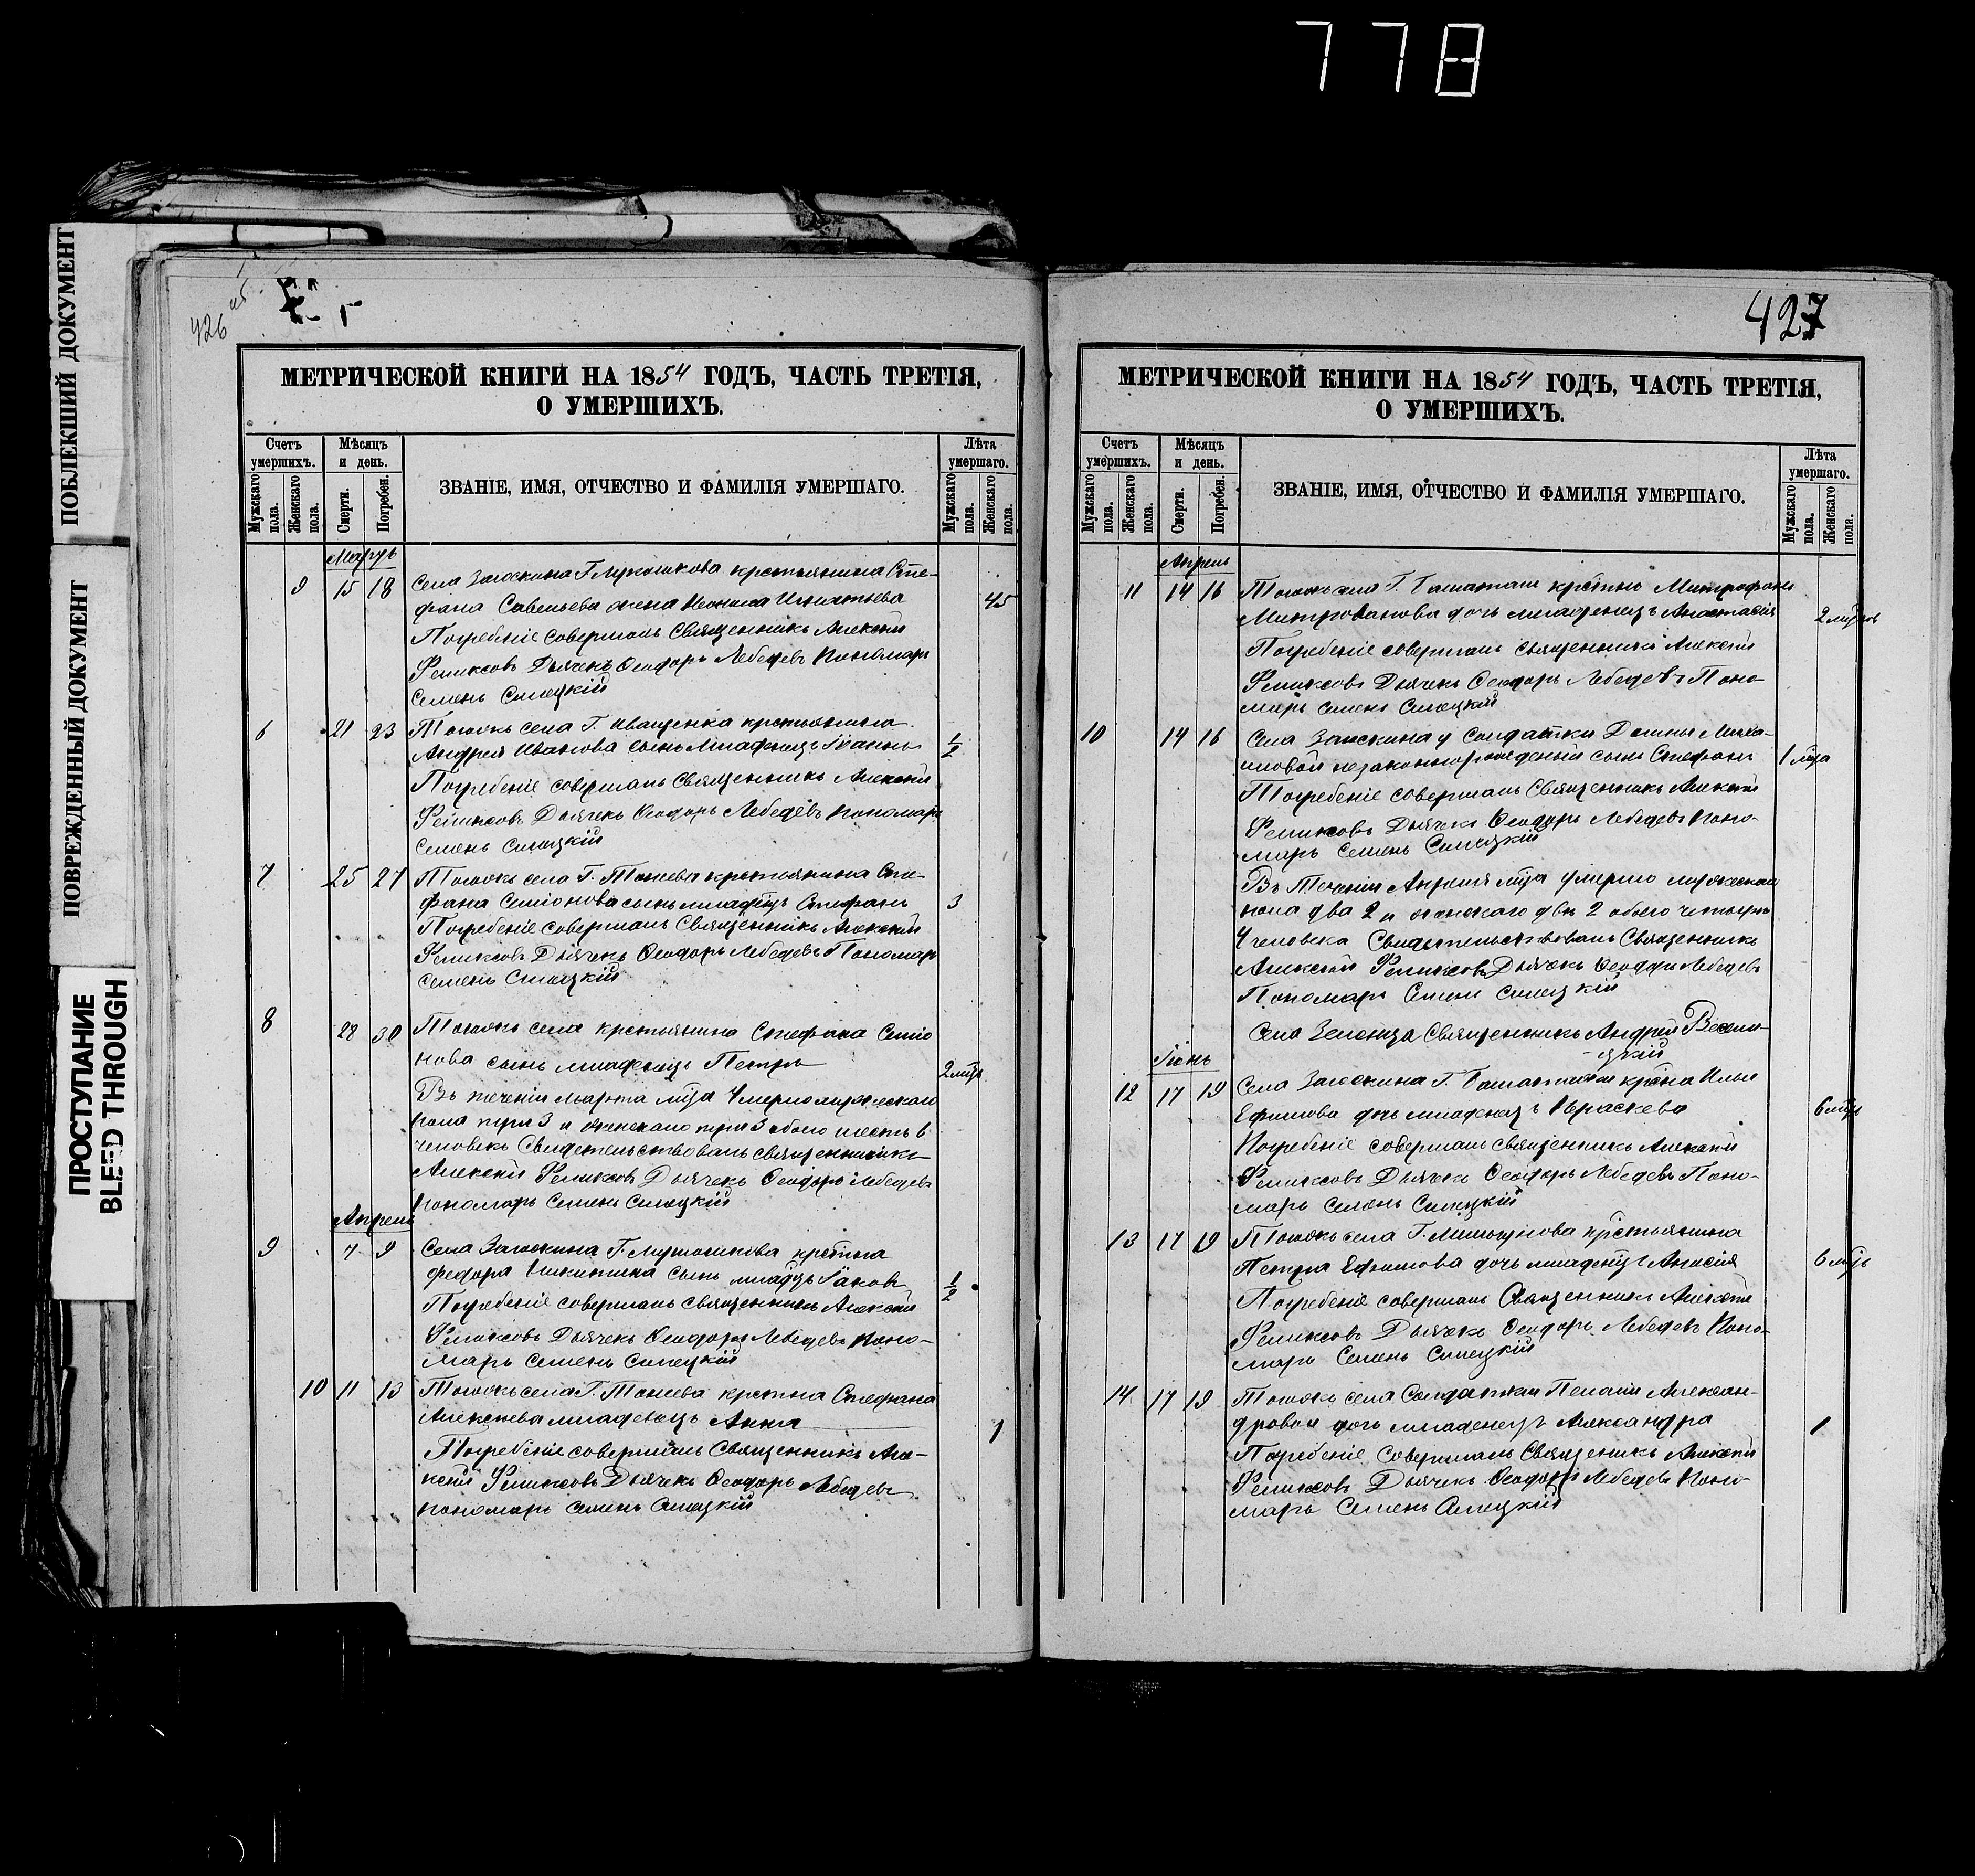 778
ПОБЛЕКШИЙ ДОКУМЕНТ
ПОВРЕЖДЕННЫЙ ДОКУМЕНТ
ПРОСТУПАНИЕ
BLEED THROUGH
426 об.
МЕТРИЧЕСКОЙ КНИГИ НА 1854 ГОДЪ, ЧАСТЬ ТРЕТІЯ,
О УМЕРШИХЪ.
Счетъ умершихъ.
Мужскаго пола.
Женскаго пола.
Мѣсяцъ и день.
Смерти.
Погребен.
ЗВАНІЕ, ИМЯ, ОТЧЕСТВО И ФАМИЛІЯ УМЕРШАГО.
Лѣта умершаго.
Мужскаго пола.
Женскаго пола.
Мартъ
9 15 18 Села Загоскина Г. Лукошкова крестьянина Сте-
фана Савельева жена Игнатьева 45
Погребеніе совершалъ Священникъ Алексѣй
Феликсовъ Дьячекъ Ѳеодоръ Лебедевъ Пономарь
Семенъ Силецкій
6 21 23 Тогожъ села Г. Иващенка крестьянина
Андрея Иванова сынъ младенецъ Іоаннъ 1/2
Погребеніе совершалъ Священникъ Алексѣй
Феликсовъ Дьячекъ Ѳеодоръ Лебедевъ Пономарь
Семенъ Силецкій
7 25 27 Тогожъ села Г. Танеева крестьянина Сте-
фана Семіонова сынъ младенецъ Стефанъ 3
Погребеніе совершалъ Священникъ Алексѣй
Феликсовъ Дьячекъ Ѳеодоръ Лебедевъ Пономарь
Семенъ Силецкій
8 28 30 Тогожъ села крестьянина Стефана Семіо
нова сынъ младенецъ Петръ 2 мѣц
Въ теченіи марта мѣца Умерло мужескаго
пола три 3 и женскаго три 3 обоего шесть 6
человекъ Свидетельствовалъ Священникъ
Алексѣй Феликсовъ Дьячекъ Ѳеодоръ Лебедевъ
Пономарь Семенъ Силецкій
Апрель
9 7 9 Села Загоскина Г. Лукошкова крестьна
Федора Никитина сынъ младцъ Іаковъ 1/2
Погребеніе совершалъ Священникъ Алексѣй
Феликсовъ Дьячекъ Ѳеодоръ Лебедевъ Поно-
марь Семенъ Силецкій
10 11 13 Тогожъ села Г. Танеева крестьна Стефана
Алексеева младенецъ Анна 1
Погребеніе совершалъ Священникъ Але-
ксѣй Феликсовъ Дьячекъ Ѳеодоръ Лебедевъ
Пономарь Семенъ Силецкій
427
МЕТРИЧЕСКОЙ КНИГИ НА 1854 ГОДЪ, ЧАСТЬ ТРЕТІЯ,
О УМЕРШИХЪ.
Счетъ умершихъ.
Мужскаго пола.
Женскаго пола.
Мѣсяцъ и день.
Смерти.
Погребен.
ЗВАНІЕ, ИМЯ, ОТЧЕСТВО И ФАМИЛІЯ УМЕРШАГО.
Лѣта умершаго.
Мужскаго пола.
Женскаго пола.
Апрель
11 14 16 Тогожъ села Г. крестьна Митрофана
Митрофанова дочь младенецъ Анастасія 2
Погребеніе совершалъ Священникъ Алексѣй
Феликсовъ Дьячекъ Ѳеодоръ Лебедевъ Поно-
марь Семенъ Силецкій
10 14 16 Села Загоскина у Солдатки Домны Миха-
иловой незаконнорожденый сынъ Стефанъ 1 мѣца
Погребеніе совершалъ Священникъ Алексѣй
Феликсовъ Дьячекъ Ѳеодоръ Лебедевъ Поно-
марь Семенъ Силецкій
Въ Теченіи Апреля мѣца умерло мужескаго
пола два 2 и женскаго двѣ 2 обоего четыре
4 человека Свидетельствовалъ Священникъ
Алексѣй Феликсовъ Дьячекъ Ѳеодоръ Лебедевъ
Пономарь Семенъ Силецкій
Села Священникъ Андрей Весели-
цкій
Іюнь
12 17 19 Села Загоскина Г. крестьна Ильи
Ефимова дочь младенецъ Параскева 6 мѣц
Погребеніе совершалъ Священникъ Алексѣй
Феликсовъ Дьячекъ Ѳеодоръ Лебедевъ Поно-
марь Семенъ Силецкій
13 17 19 Тогожъ села Г. крестьянина
Петра Ефимова дочь младенецъ Анисія 6 мѣц
Погребеніе совершалъ Священникъ Алексѣй
Феликсовъ Дьячекъ Ѳеодоръ Лебедевъ Поно-
марь Семенъ Силецкій
14 17 19 Тогожъ села Солдатки Пелагіи Алексан-
дровой дочь младенецъ Александра 1
Погребеніе совершалъ Священикъ Алексѣй
Феликсовъ Дьячекъ Ѳеодоръ Лебедевъ Поно-
марь Семенъ Силецкій